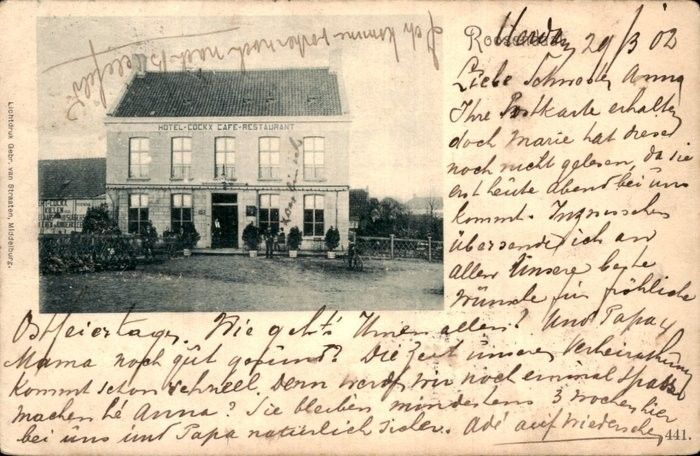 Ich komme
Roosendaal
29/3 02
Liebe Schwester Anna
Ihre Postkarte erhalten
doch Marie hat diese
noch nicht gelesen, da sie
erst heute abend bei uns
kommt. Inzwischen
übersende ich an
allen unsere beste
Wünsche für fröhliche
Ostfeiertage. Wie geht's Ihnen allen? Und Papa &
Mama noch gut gesund? Die Zeit unserer Verheirathung
kommt schon schnell. Denn werden wir noch einmal Spass
machen hé Anna? Sie bleiben mindestens 3 Wochen hier
bei uns und Papa natürlich sicher. Adé auf Wiedersehen
441.
HOTEL-COCKX CAFE-RESTAURANT
Lichtdruk Gebr. van Straaten, Middelburg.